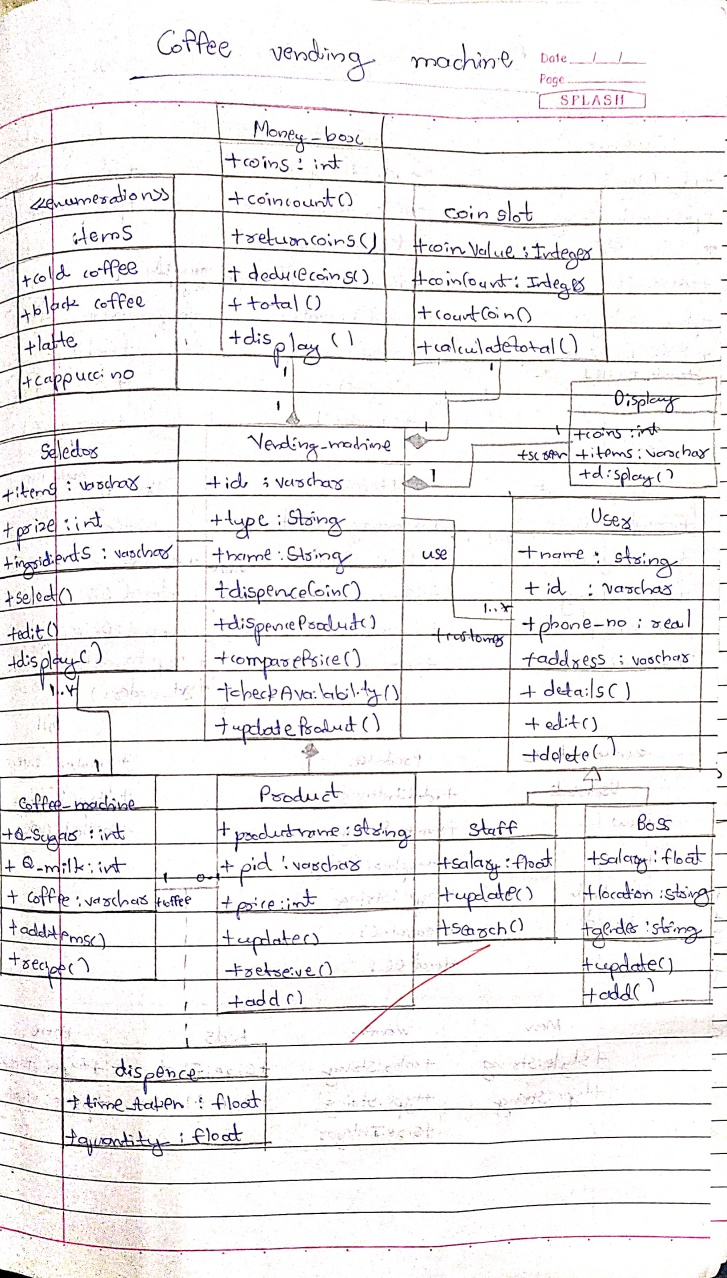 Coffee vending machine
Date / /
Page
SPLASH
Money-box
+coins : int
+coincount()
+returncoins()
+deducecoins()
+total()
+display()
<<enumeration>>
items
+cold coffee
+black coffee
+latte
+cappuccino
coin slot
+coinValue : Integer
+coinCount : Integer
+countCoin()
+calculatetotal()
1
1
1
1
Display
+coins : int
+items : varchar
+display()
1
+screen
1
Selector
+items : varchar
+prize : int
+ingridients : varchar
+select()
+edit()
+display()
Vending-machine
+id : varchar
+type : String
+name : String
+dispenceCoin()
+dispenceProduct()
+comparePrice()
+checkAvailability()
+updateProduct()
use
1..*
+customer
User
+name : string
+id : varchar
+phone-no : real
+address : varchar
+details()
+edit()
+delete()
1..*
1
Coffee-machine
+Q-Sugar : int
+Q-milk : int
+coffee : varchar
+additems()
+recipe()
1
+coffee
Product
+productname : string
+pid : varchar
+price : int
+update()
+retreive()
+add()
Staff
+salary : float
+update()
+search()
Boss
+salary : float
+location : string
+gender : string
+update()
+add()
dispence
+time_taken : float
+quantity : float